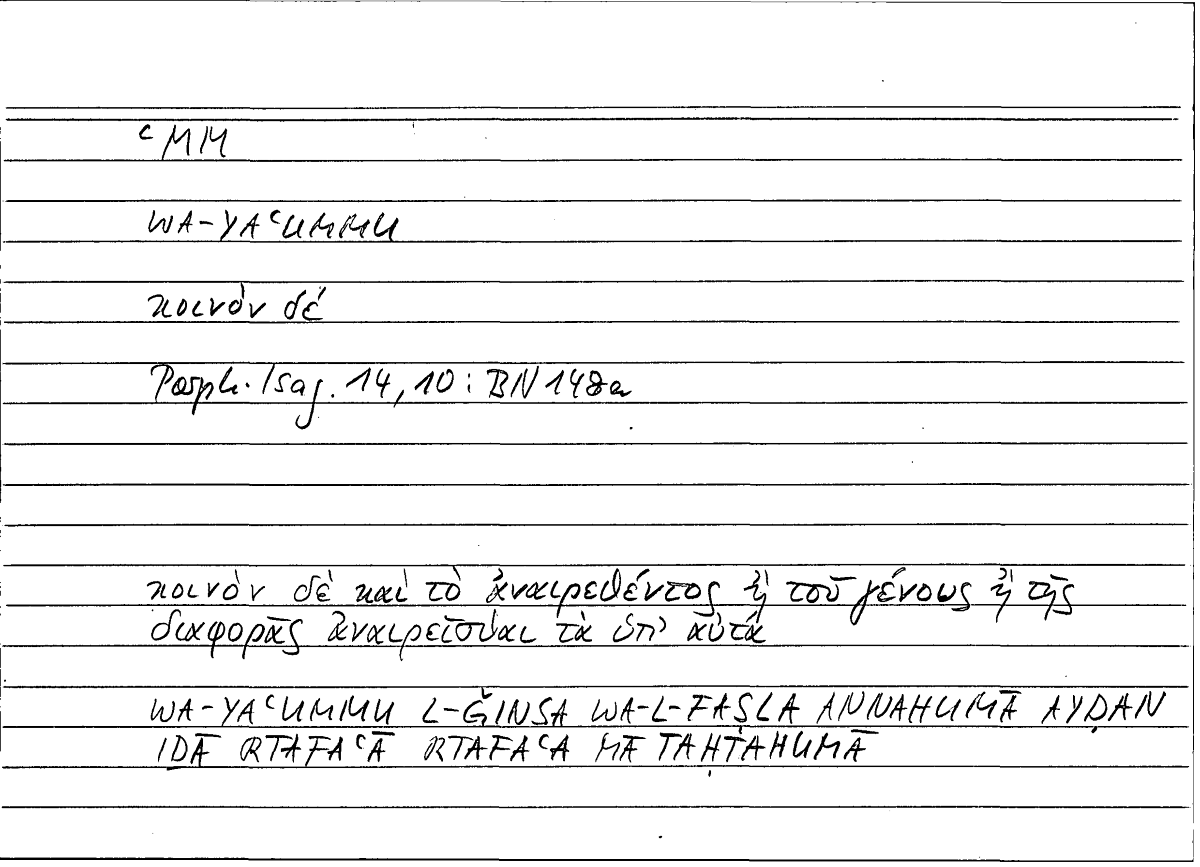 ᶜMM
WA-YAᶜUMMU
κοινὸν δέ
Porph. Isag. 14,10: BN 148a
κοινὸν δὲ καὶ τὸ ἀναιρεθέντος ἢ τοῦ γένους ἢ τῆς
διαφορᾶς ἀναιρεῖσθαι τὰ ὑπ' αὐτά
WA-YAᶜUMMU L-ǦINSA WA-L-FAṢLA ANNAHUMĀ AYḌAN
IḎĀ RTAFAᶜĀ RTAFAᶜA MĀ TAḤTAHUMĀ